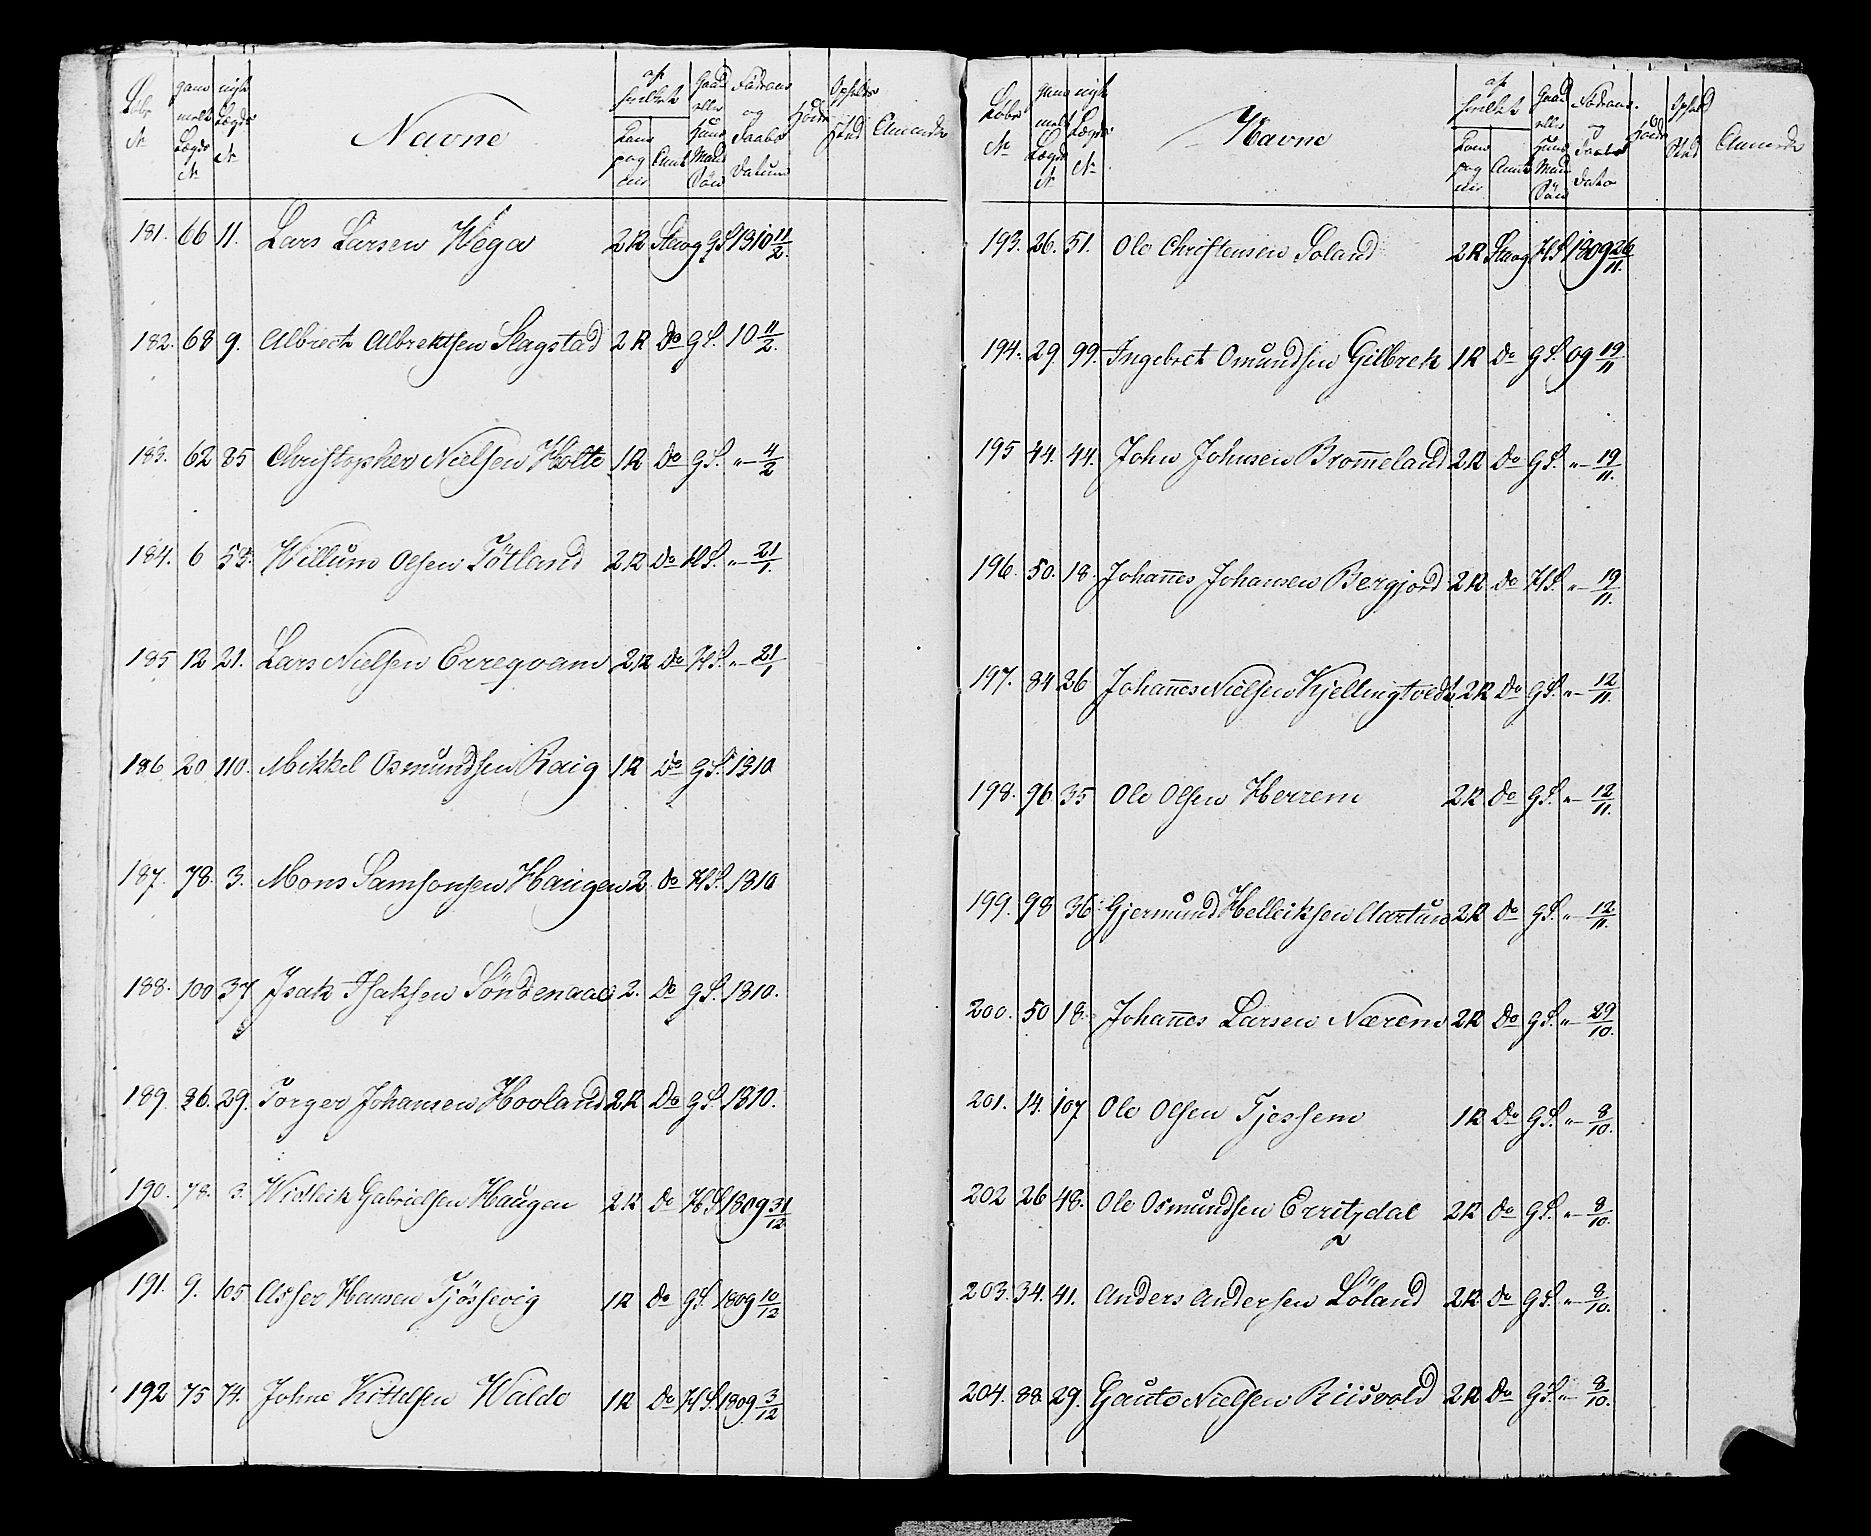 Løbe № gammelt Lægds № nyt Lægds № Navne af hvilket Compagnie Amt Gaard eller Huus Mands Søn Fødsels og Daabs Datum Høide Opholds Sted Anmærk
181. 66 11. Lars Larsen Wega 2 R Stavg G S. 1810 11/2.
182. 68 9. Albrect Albrektsen Slagstad 2 R Do G S. 10 11/2.
183. 62 85 Christopher Nielsen Holte 1 R Do G S. „ 4/2
184. 6 58. Willum Olsen Tøtland 2 R Do H S. „ 21/1.
185 12 21. Lars Nielsen Erregvam 2 R Do H S. „ 21/1
186 20 110. Mikkel Osmundsen Raig 1 R Do G S. 1810
187. 78. 3. Mons Samsonsen Haugen 2 Do H S. 1810
188. 100 37 Isak Isaksen Söndenaae 2. Do G S. 1810.
189. 86. 29. Torger Johansen Hooland 2 R Do G S. 1810.
190. 78. 3. Widleik Gabrielsen Haugen 2 R Do H S 1809 31/12
191. 9. 105 Asser Hansen Tjössevig 1 R Do G S. 1809 10/12
192 75 74. Johne Kittelsen Walde 1 R Do H S. 1809 3/12
Løbe № gammelt Lægds № nyt Lægds № Navne af hvilket Compagnie Amt Gaard eller Huus Mands Søn Fødsels og Daabs Dato Høide Ophold Sted Anmærk
193. 26. 51. Ole Christensen Soland 2 R Stavg H S 1809 26/11.
194. 29. 99. Ingebret Omundsen Gilbrek 1 R Do G S. 09 19/11
195 44. 44. John Johnsen Brom̅eland 2 R Do G S. „ 19/11.
196. 50. 18. Johan̅es Johansen Bergjord 2 R Do H S. „ 19/11.
197. 84 26 Johan̅es Nielsen Kjellingtvedt 2 R Do G S. „ 12/11.
198. 96. 35 Ole Olsen Herrem 2 R Do G S. „ 12/11.
199. 98 36. Gjermund Helleiksen Aartun 2 R Do G S. „ 12/11.
200. 50 18. Johan̅es Larsen Nærem 2 R Do G S. „ 29/10.
201. 14. 107 Ole Olsen Tjessem 1 R Do G S. „ 8/10.
202 26 48. Ole Osmundsen Erritzdal 2 R Do G S. „ 8/10.
203. 34. 41. Anders Andersen Löland 2 R Do G S. „ 8/10.
204. 88. 29. Gaute Nielsen Riisvold 2 R Do G S. „ 8/10.